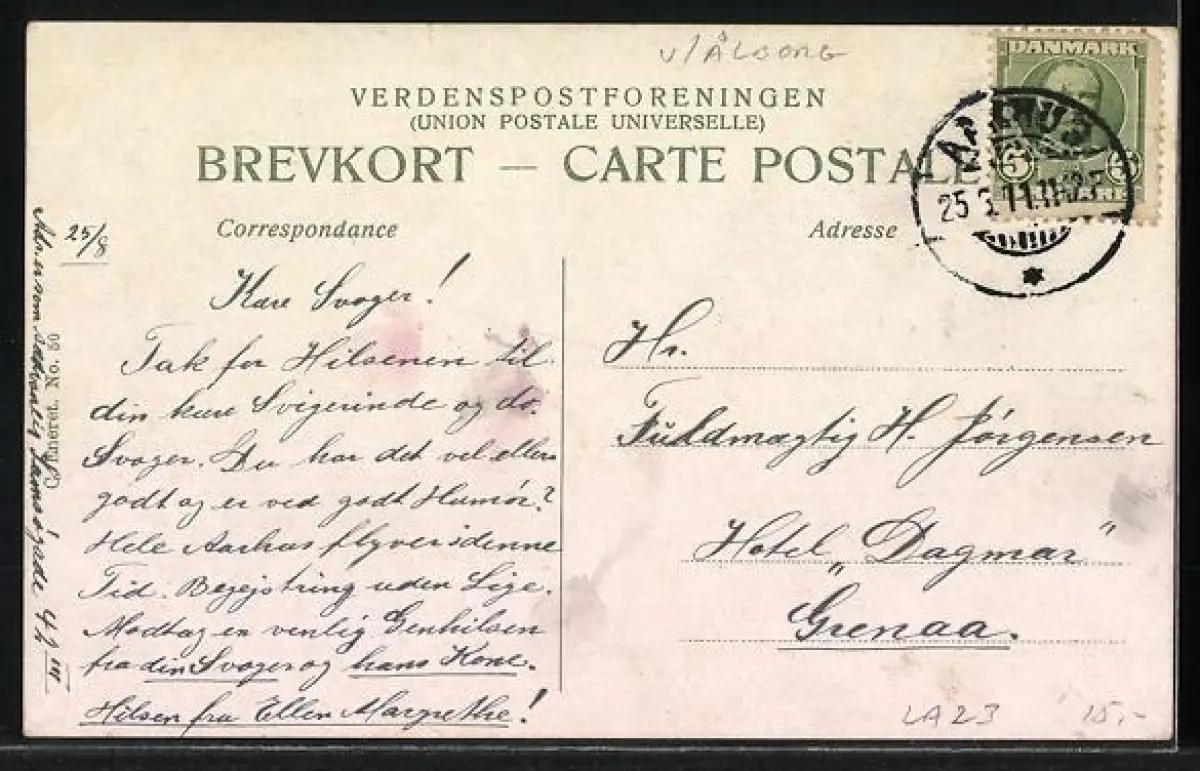 v/ÅLBORG
VERDENSPOSTFORENINGEN
(UNION POSTALE UNIVERSELLE)
BREVKORT — CARTE POSTALE
DANMARK
5 5
AARHUS
25
Correspondance
Adresse
25/8
Kære Svoger!
Tak for Hilsenen til
din kære Svigerinde og do.
Svoger. Du har det vel ellers
godt og er ved godt Humør?
Hele Aarhus flyver i denne
Tid. Begejstring uden Lige.
Modtag en venlig Genhilsen
fra din Svoger og hans Kone.
Hilsen fra Ellen Margrethe!
Hr.
Fuldmægtig H. Jørgensen
Hotel „Dagmar”
Grenaa.
Samsøgade 42 III
eneret. No. 50
LA23
15,-